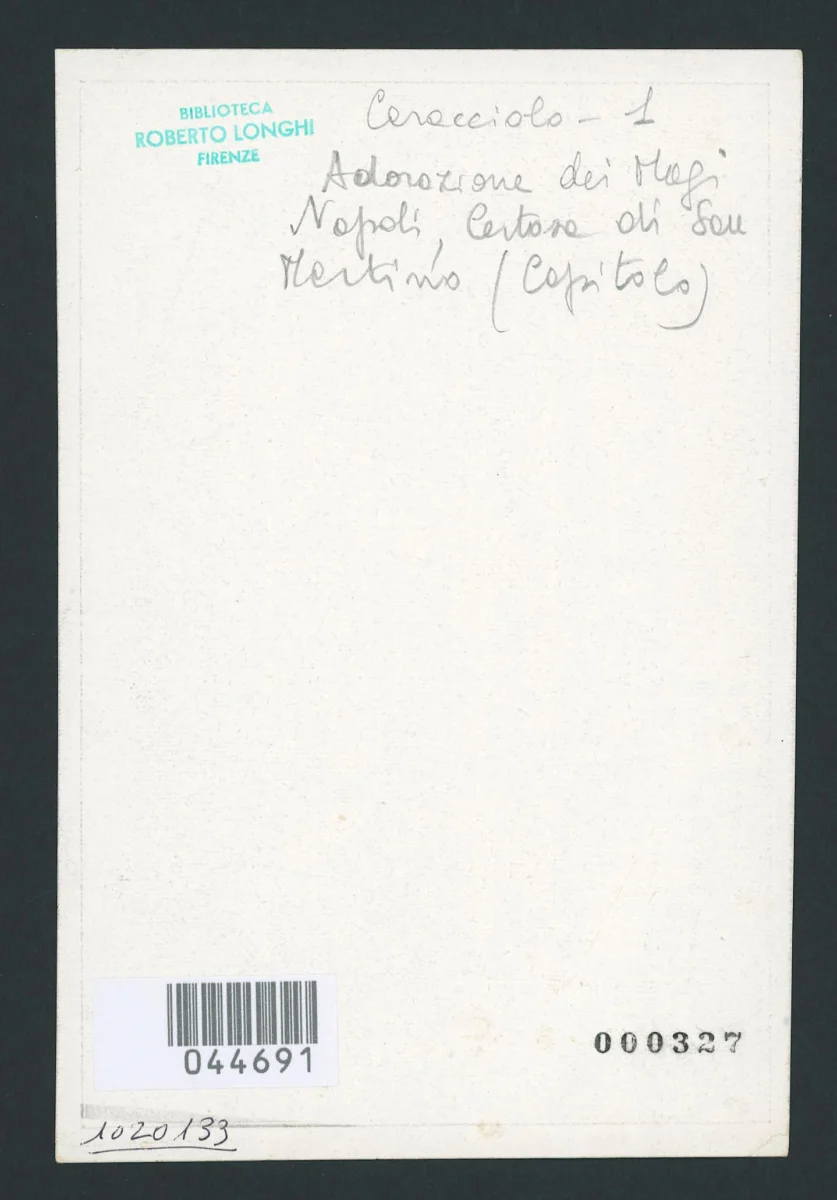 BIBLIOTECA
ROBERTO LONGHI
FIRENZE
Caracciolo - 1
Adorazione dei Magi
Napoli, Certosa di San
Martino (Capitolo)
044691
000327
1020133